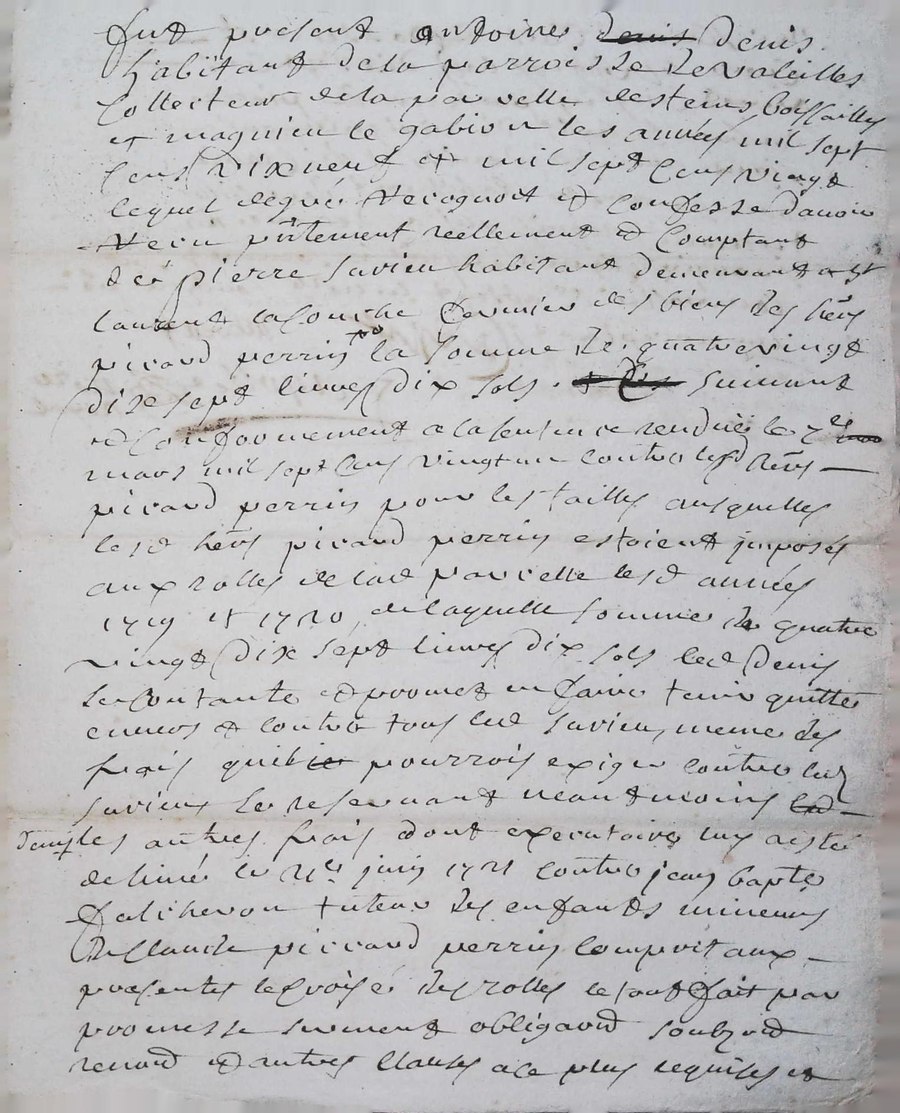 fut present antoine denis Denis
habitant de la parroisse de valeilles
Collecteur de la parcelle
et magnieu le gabion les années mil sept
Cens dixneuf et mil sept Cens vingt
lequel de gré recognoit et confesse d'avoir
receu pntement reellement et Comptant
de sr pierre Savieu habitant demeurant a st
laurent la Conche fermier des biens des hers
picard perrin la somme de quatre vingt
dixe sept livres dix sols suivant
et Conformement a la sentence rendue le 7e
mars mil sept cens vingt un contre lesd hers
picard perrin pour les tailles ausquelles
lesd hers picard perrin estoient imposés
aux rolles de lad parcelle lesd années
1719 et 1720 de laquelle somme de quatre
vingt dix sept livres dix sols led Denis
se contante et promet en faire tenir quitte
envers et contre tous led Savieu, meme des
frais quil pourroit exiger contre led
Savieu se reservant neantmoins
les autres frais dont executoire luy a esté
delivré le juin 1721 contre jean bapte
falcheron tuteur des enfants mineurs
de Claude piccard perrin comprit aux
presentes le des rolles le tout fait par
promesse serment obligaon soubz
renon et autres clauses a ce plus requises et